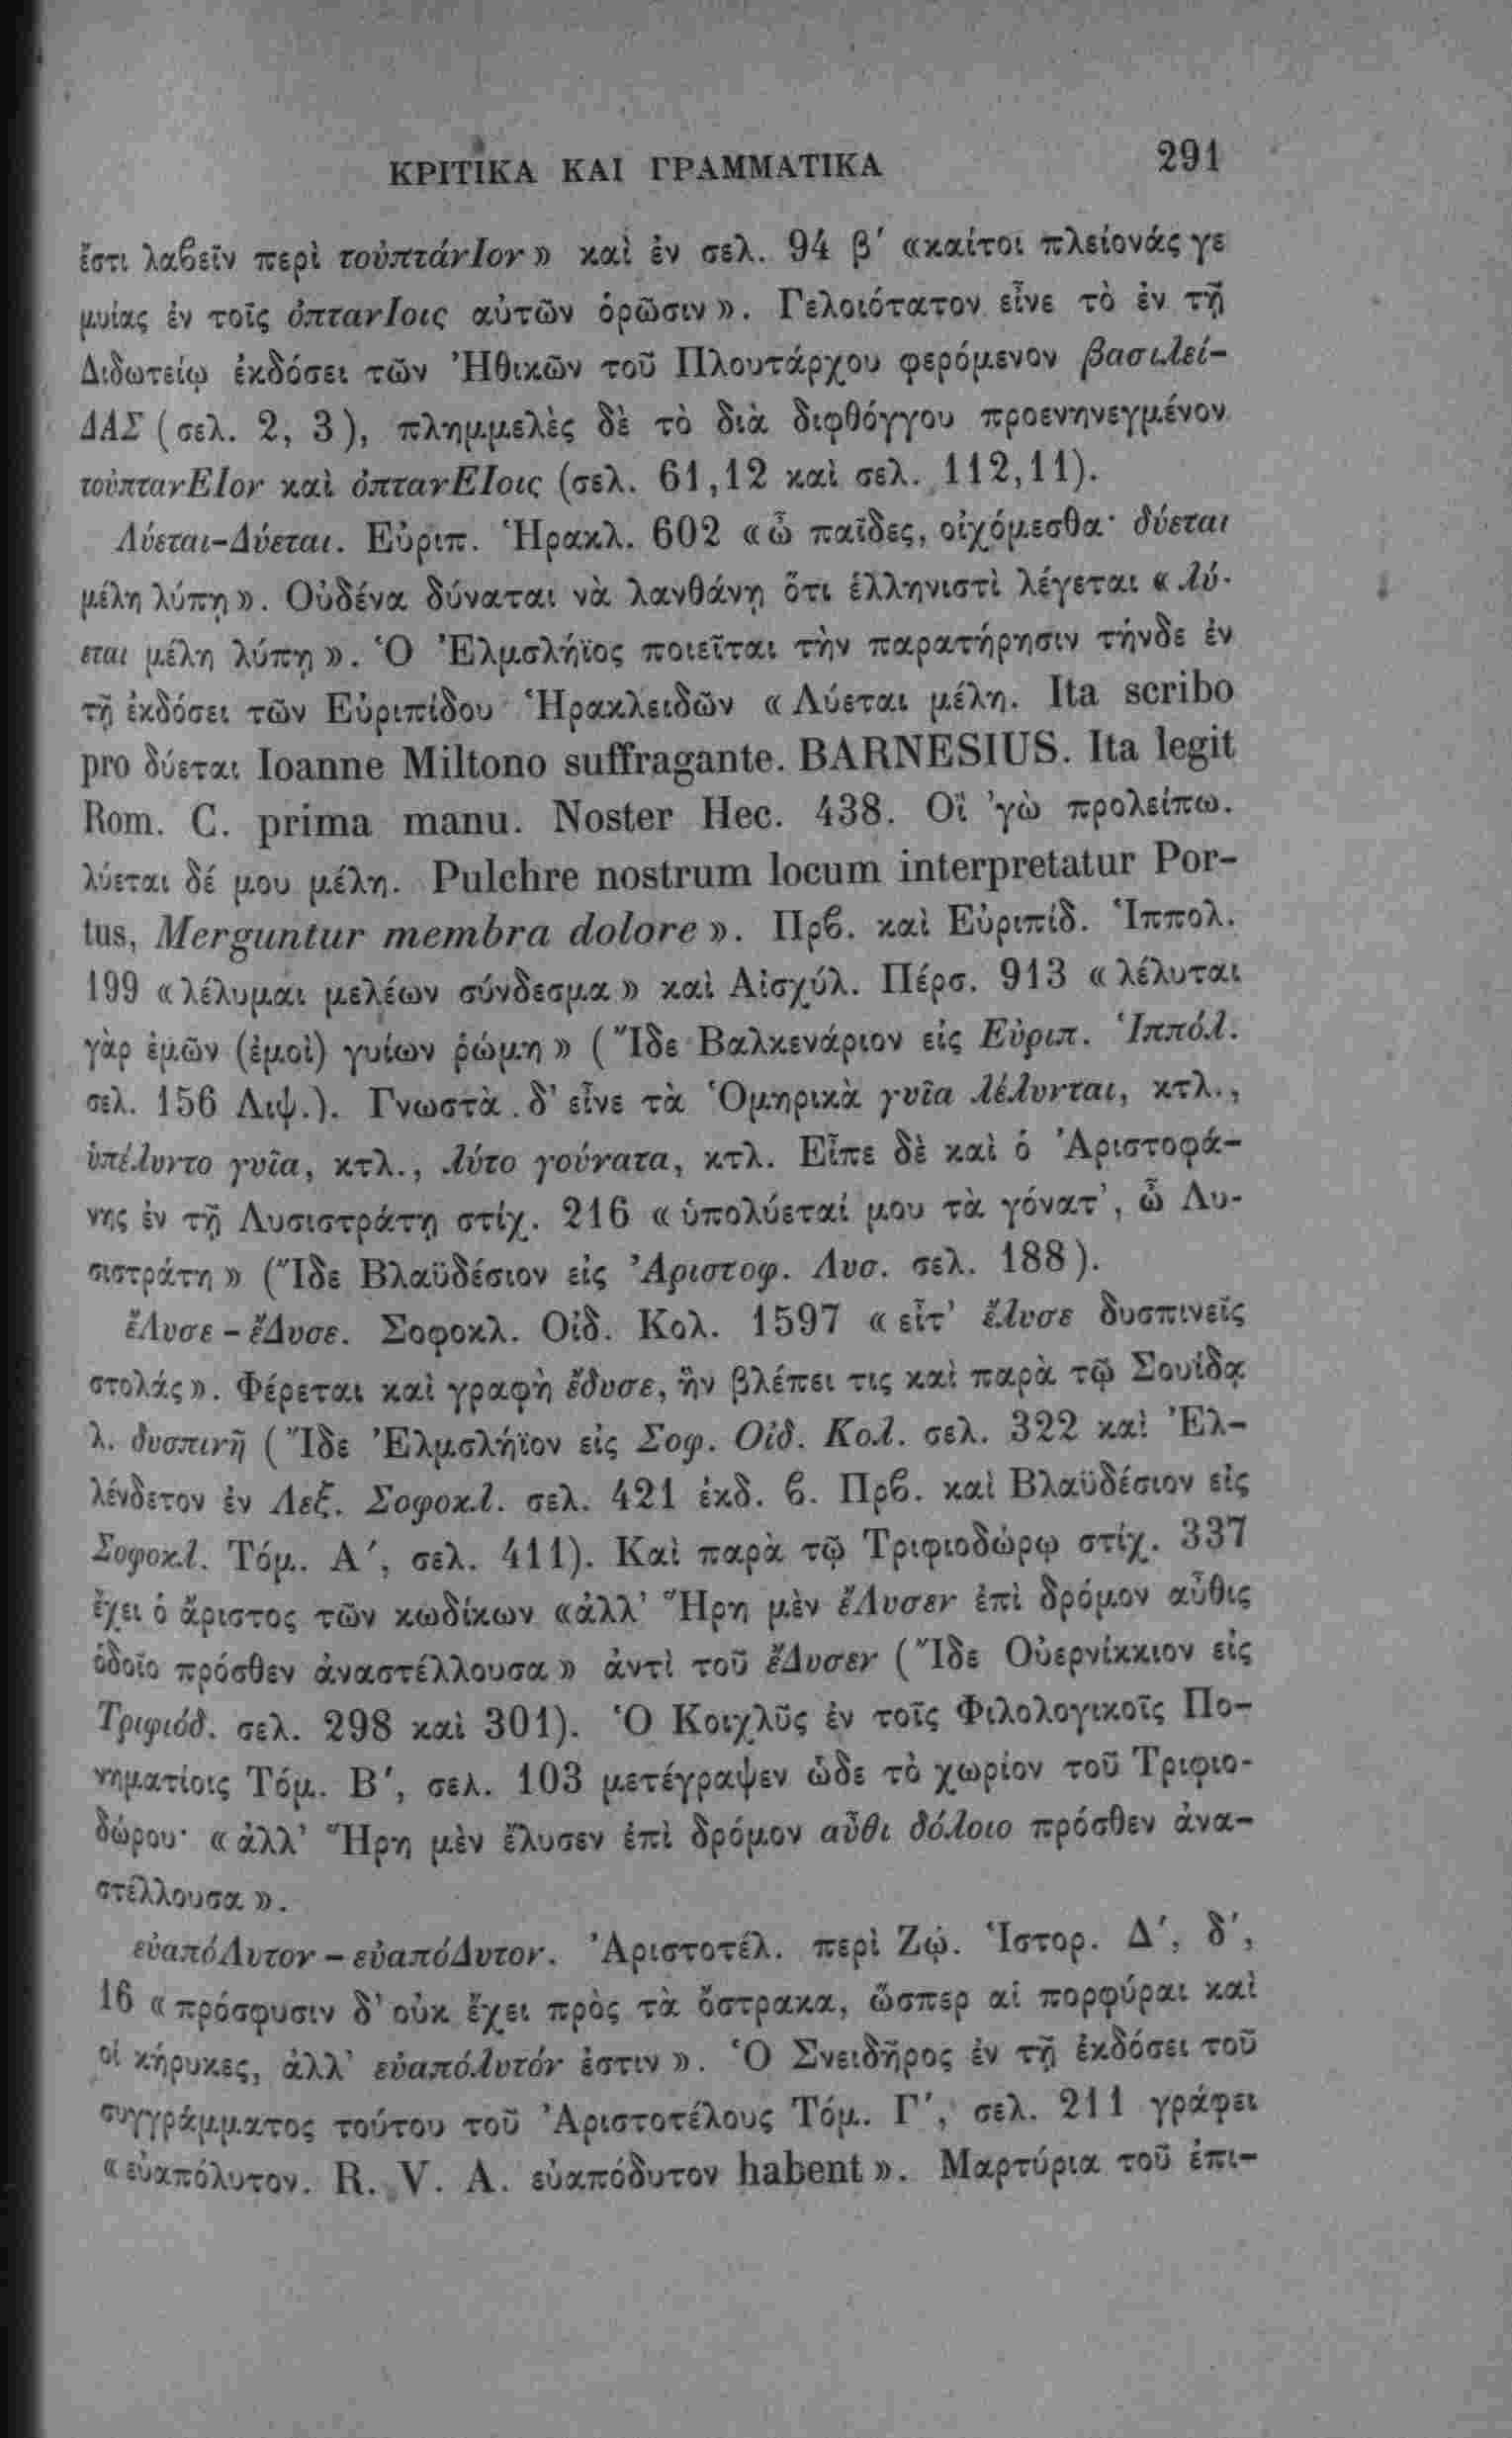 ΚΡΙΤΙΚΑ ΚΑΙ ΓΡΑΜΜΑΤΙΚΑ 291
ἔστι λαβεῖν περὶ τοὐπτάνΙον» καὶ ἐν σελ. 94 β′ «καίτοι πλείονάς γε
μυίας ἐν τοῖς ὀπτανΙοις αὐτῶν ὁρῶσιν». Γελοιότατον εἶνε τὸ ἐν τῇ
Διδωτείῳ ἐκδόσει τῶν Ἠθικῶν τοῦ Πλουτάρχου φερόμενον βασιλεί-
ΔΑΣ (σελ. 2, 3), πλημμελὲς δὲ τὸ διὰ διφθόγγου προενηνεγμένον
τοὐπτανΕΙον καὶ ὀπτανΕΙοις (σελ. 61,12 καὶ σελ. 112,11).
Λύεται-Δύεται. Εὐριπ. Ἡρακλ. 602 «ὦ παῖδες, οἰχόμεσθα· δύεται
μέλη λύπῃ». Οὐδένα δύναται νὰ λανθάνῃ ὅτι ἑλληνιστὶ λέγεται «λύ-
εται μέλη λύπῃ». Ὁ Ἐλμσλήϊος ποιεῖται τὴν παρατήρησιν τήνδε ἐν
τῇ ἐκδόσει τῶν Εὐριπίδου Ἡρακλειδῶν «Λύεται μέλη. Ita scribo
pro δύεται Ioanne Miltono suffragante. BARNESIUS. Ita legit
Rom. C. prima manu. Noster Hec. 438. Οἲ ’γὼ προλείπω.
λύεται δέ μου μέλη. Pulchre nostrum locum interpretatur Por-
tus, Merguntur membra dolore». Πρβ. καὶ Εὐριπίδ. Ἱππολ.
199 «λέλυμαι μελέων σύνδεσμα» καὶ Αἰσχύλ. Πέρσ. 913 «λέλυται
γὰρ ἐμῶν (ἐμοὶ) γυίων ῥώμη» (Ἴδε Βαλκενάριον εἰς Εὐριπ. Ἱππόλ.
σελ. 156 Λιψ.). Γνωστὰ δ’ εἶνε τὰ Ὁμηρικὰ γυῖα λέλυνται, κτλ.,
ὑπέλυντο γυῖα, κτλ., λύτο γούνατα, κτλ. Εἶπε δὲ καὶ ὁ Ἀριστοφά-
νης ἐν τῇ Λυσιστράτῃ στίχ. 216 «ὑπολύεταί μου τὰ γόνατ’, ὦ Λυ-
σιστράτη» (Ἴδε Βλαϋδέσιον εἰς Ἀριστοφ. Λυσ. σελ. 188).
ἔΛυσε - ἔΔυσε. Σοφοκλ. Οἰδ. Κολ. 1597 «εἶτ’ ἔλυσε δυσπινεῖς
στολάς». Φέρεται καὶ γραφὴ ἔδυσε, ἣν βλέπει τις καὶ παρὰ τῷ Σουίδᾳ
λ. δυσπινῆ (Ἴδε Ἐλμσλήϊον εἰς Σοφ. Οἰδ. Κολ. σελ. 322 καὶ Ἐλ-
λένδετον ἐν Λεξ. Σοφοκλ. σελ. 421 ἐκδ. β. Πρβ. καὶ Βλαϋδέσιον εἰς
Σοφοκλ. Τόμ. Α′, σελ. 411). Καὶ παρὰ τῷ Τριφιοδώρῳ στίχ. 337
ἔχει ὁ ἄριστος τῶν κωδίκων «ἀλλ’ Ἥρη μὲν ἔΛυσεν ἐπὶ δρόμον αὖθις
ὁδοῖο πρόσθεν ἀναστέλλουσα» ἀντὶ τοῦ ἔΔυσεν (Ἴδε Οὐερνίκκιον εἰς
Τριφιόδ. σελ. 298 καὶ 301). Ὁ Κοιχλῦς ἐν τοῖς Φιλολογικοῖς Πο-
νηματίοις Τόμ. Β′, σελ. 103 μετέγραψεν ὧδε τὸ χωρίον τοῦ Τριφιο-
δώρου· «ἀλλ’ Ἥρη μὲν ἔλυσεν ἐπὶ δρόμον αὖθι δόλοιο πρόσθεν ἀνα-
στέλλουσα».
εὐαπόΛυτον - εὐαπόΔυτον. Ἀριστοτέλ. περὶ Ζῴ. Ἱστορ. Δ′, δ′,
16 «πρόσφυσιν δ’ οὐκ ἔχει πρὸς τὰ ὄστρακα, ὥσπερ αἱ πορφύραι καὶ
οἱ κήρυκες, ἀλλ’ εὐαπόλυτόν ἐστιν». Ὁ Σνειδῆρος ἐν τῇ ἐκδόσει τοῦ
συγγράμματος τούτου τοῦ Ἀριστοτέλους Τόμ. Γ′, σελ. 211 γράφει
«εὐαπόλυτον. R. V. A. εὐαπόδυτον habent». Μαρτύρια τοῦ ἐπι-